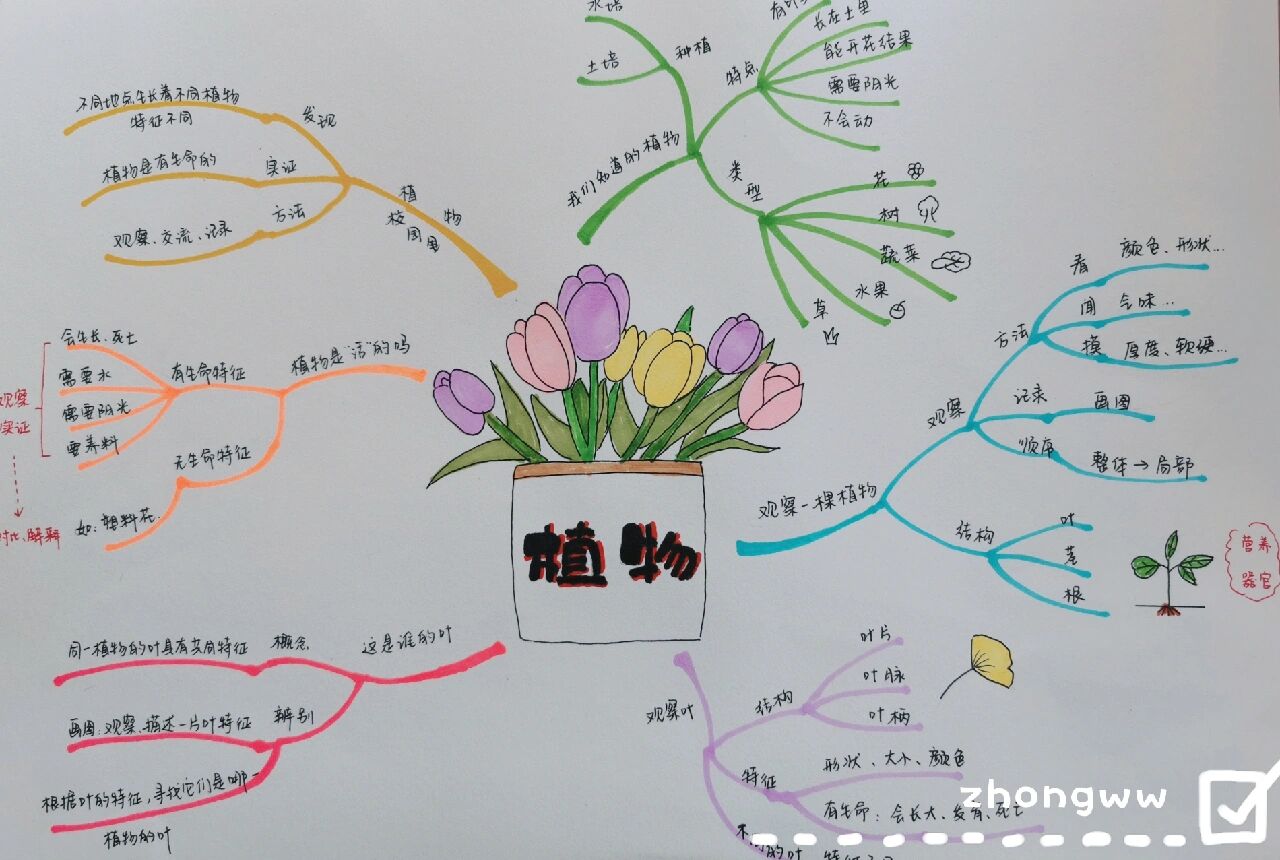 植物
我们知道的植物
种植
水培
土培
特点
长在土里
能开花结果
需要阳光
不会动
类型
花
树
蔬菜
水果
草
观察一棵植物
观察
方法
看
颜色、形状...
闻
气味...
摸
厚度、软硬...
记录
画图
顺序
整体→局部
结构
叶
茎
根
营养
器官
观察叶
结构
叶片
叶脉
叶柄
特征
形状、大小、颜色
有生命:会长大、发育、死亡
的叶
这是谁的叶
概念
同一植物的叶具有共同特征
辨别
画图:观察、描述一片叶特征
根据叶的特征,寻找它们是哪一
植物的叶
植物是“活”的吗
有生命特征
会生长、死亡
需要水
需要阳光
需养料
观察
实证
对比、解释
无生命特征
如:塑料花
校园里
植物
发现
不同地点生长着不同植物
特征不同
实证
植物是有生命的
方法
观察、交流、记录
zhongww